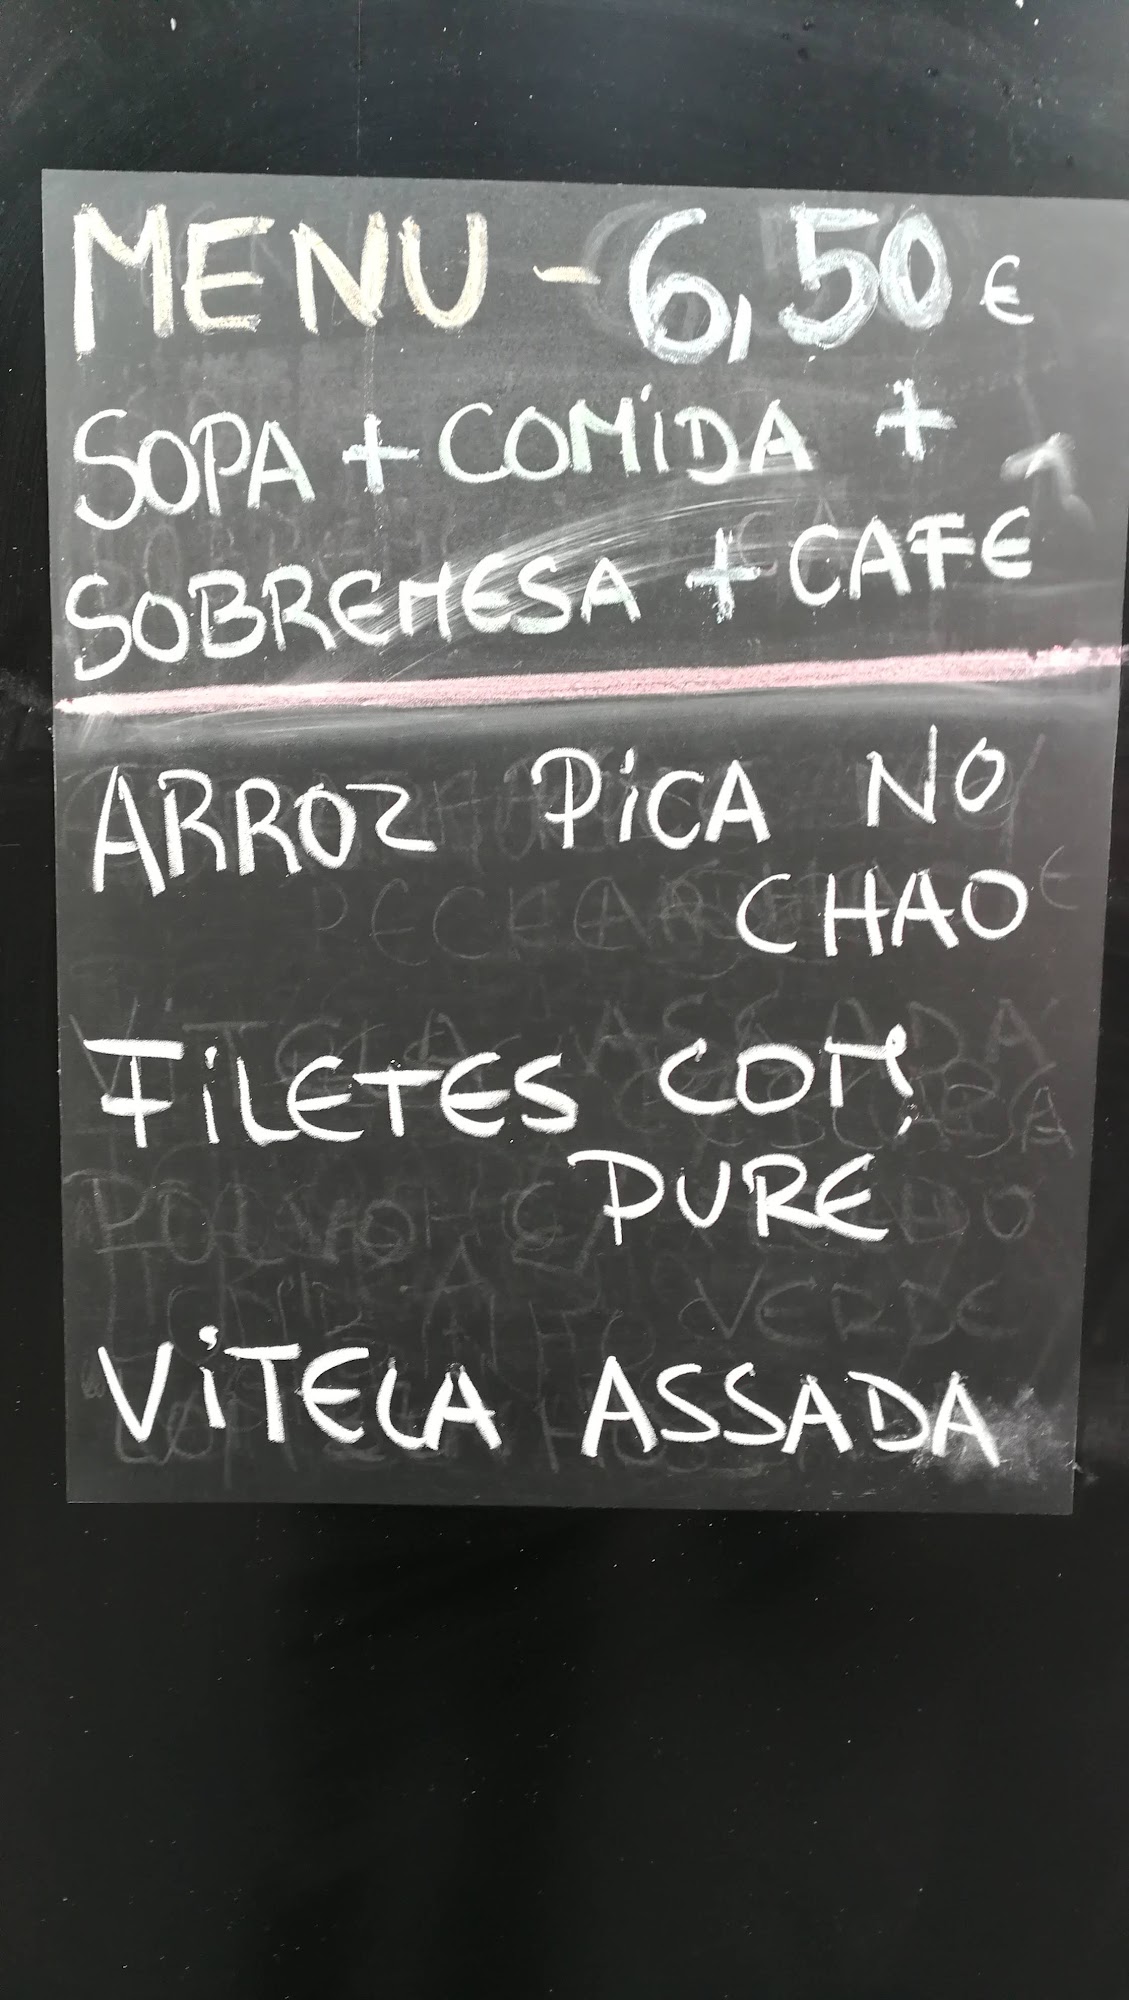 MENU - 6,50 €
SOPA + COMiDA +
SOBREMESA + CAFE
ARROZ PiCA NO
CHAO
FiLETES COM
PURE
ViTELA ASSADA